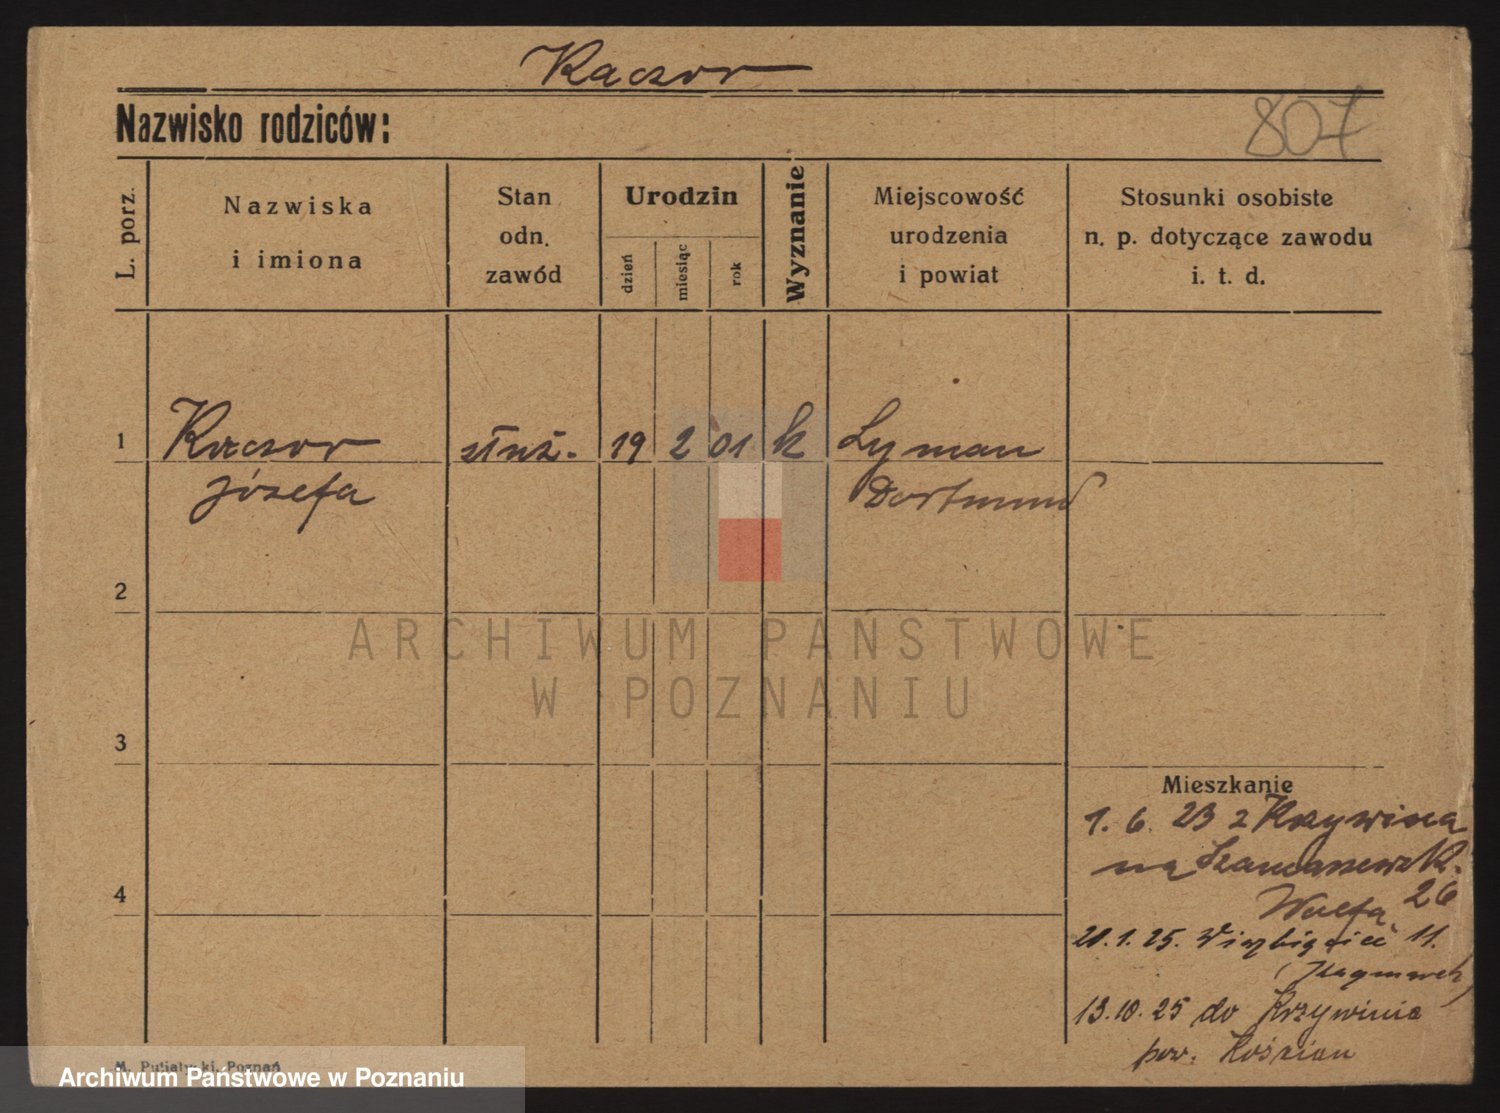 Kaczor
Nazwisko rodziców:
807
L. porz.
Nazwiska
i imiona
Stan
odn.
zawód
Urodzin
dzień
miesiąc
rok
Wyznanie
Miejscowość
urodzenia
i powiat
Stosunki osobiste
n. p. dotyczące zawodu
i. t. d.
1 Kaczor służ. 19 2 01 k Lyman
Józefa Dortmund
2
ARCHIWUM PAŃSTWOWE
W POZNANIU
3
Mieszkanie
1. 6. 23 z Krzywina
na
4
26
21.1.25. 11.
13.10.25 do Krzywinia
pow. Kościan
Poznań
Archiwum Państwowe w Poznaniu